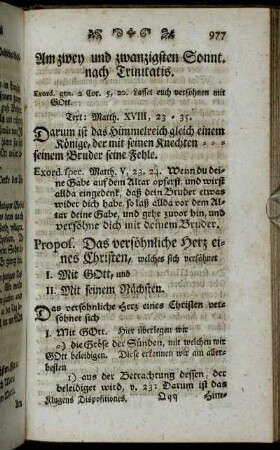 977
Am zwey und zwanzigsten Sonnt.
nach Trinitatis.
Exord. gen. 2 Cor. 5, 20. Lasset euch versöhnen mit
GOtt.
Text: Matth. XVIII, 23 - 35.
Darum ist das Himmelreich gleich einem
Könige, der mit seinen Knechten - - -
seinem Bruder seine Fehle.
Exord. spec. Matth. V, 23. 24. Wenn du dei-
ne Gabe auf dem Altar opferst, und wirst
allda eingedenk, daß dein Bruder etwas
wider dich habe, so laß allda vor dem Al-
tar deine Gabe, und gehe zuvor hin, und
versöhne dich mit deinem Bruder.
Propos. Das versöhnliche Herz ei-
nes Christen, welches sich versöhnet
I. Mit GOtt, und
II. Mit seinem Nächsten.
Das versöhnliche Herz eines Christen ver-
söhnet sich
I. Mit GOtt. Hier überlegen wir
1) die Gröse der Sünden, mit welchen wir
GOtt beleidigen. Diese erkennen wir am aller-
besten
1) aus der Betrachtung dessen, der
beleidiget wird, v. 23: Darum ist das
Klugens Dispositiones. Qqq Him-